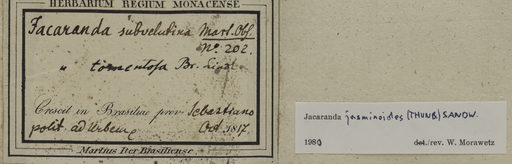 HERBARIUM REGIUM MONACENSE
Jacaranda subvelutina Mart. Obs.
No. 202.
" tomentosa Br.
Crescit in Brasiliae prov. Sebastiano
polit. ad Urbem
Oct. 1817.
Martius Iter Brasiliense.
Jacaranda jasminoides (THUNB.) SANDW.
1980 det./rev. W. Morawetz